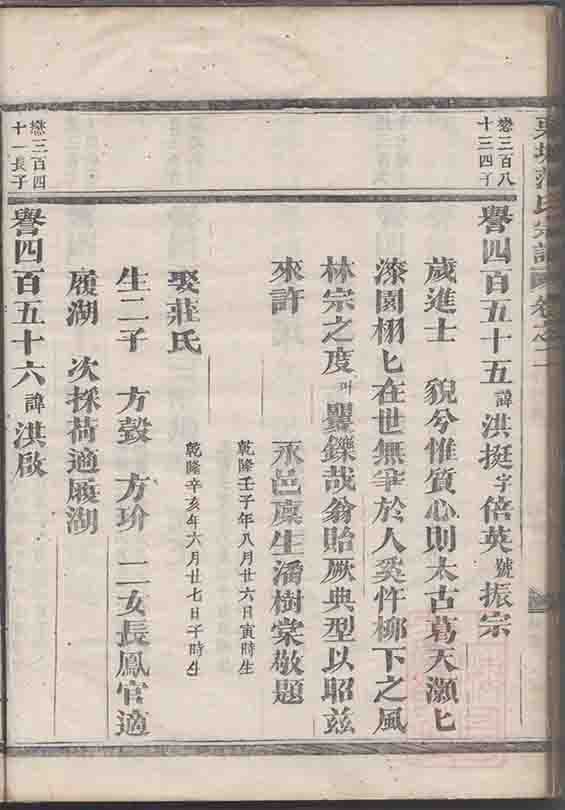 氏宗譜 卷之二
懋三百八
十三四子
譽四百五十五 諱 洪挺 字 倍英 號 振宗
歲進士 貌兮惟質心則太古葛天灝匕
漆園栩匕在世無爭於人奚忤柳下之風
林宗之度吁矍鑠哉翁貽厥典型以昭茲
來許 永邑廩生潘樹棠敬題
乾隆壬子年八月廿六日寅時生
娶莊氏 乾隆辛亥年六月廿七日子時生
生二子 方瑴 方玠 二女長鳳官適
履湖 次採荷適履湖
懋三百四
十一長子
譽四百五十六 諱 洪啟